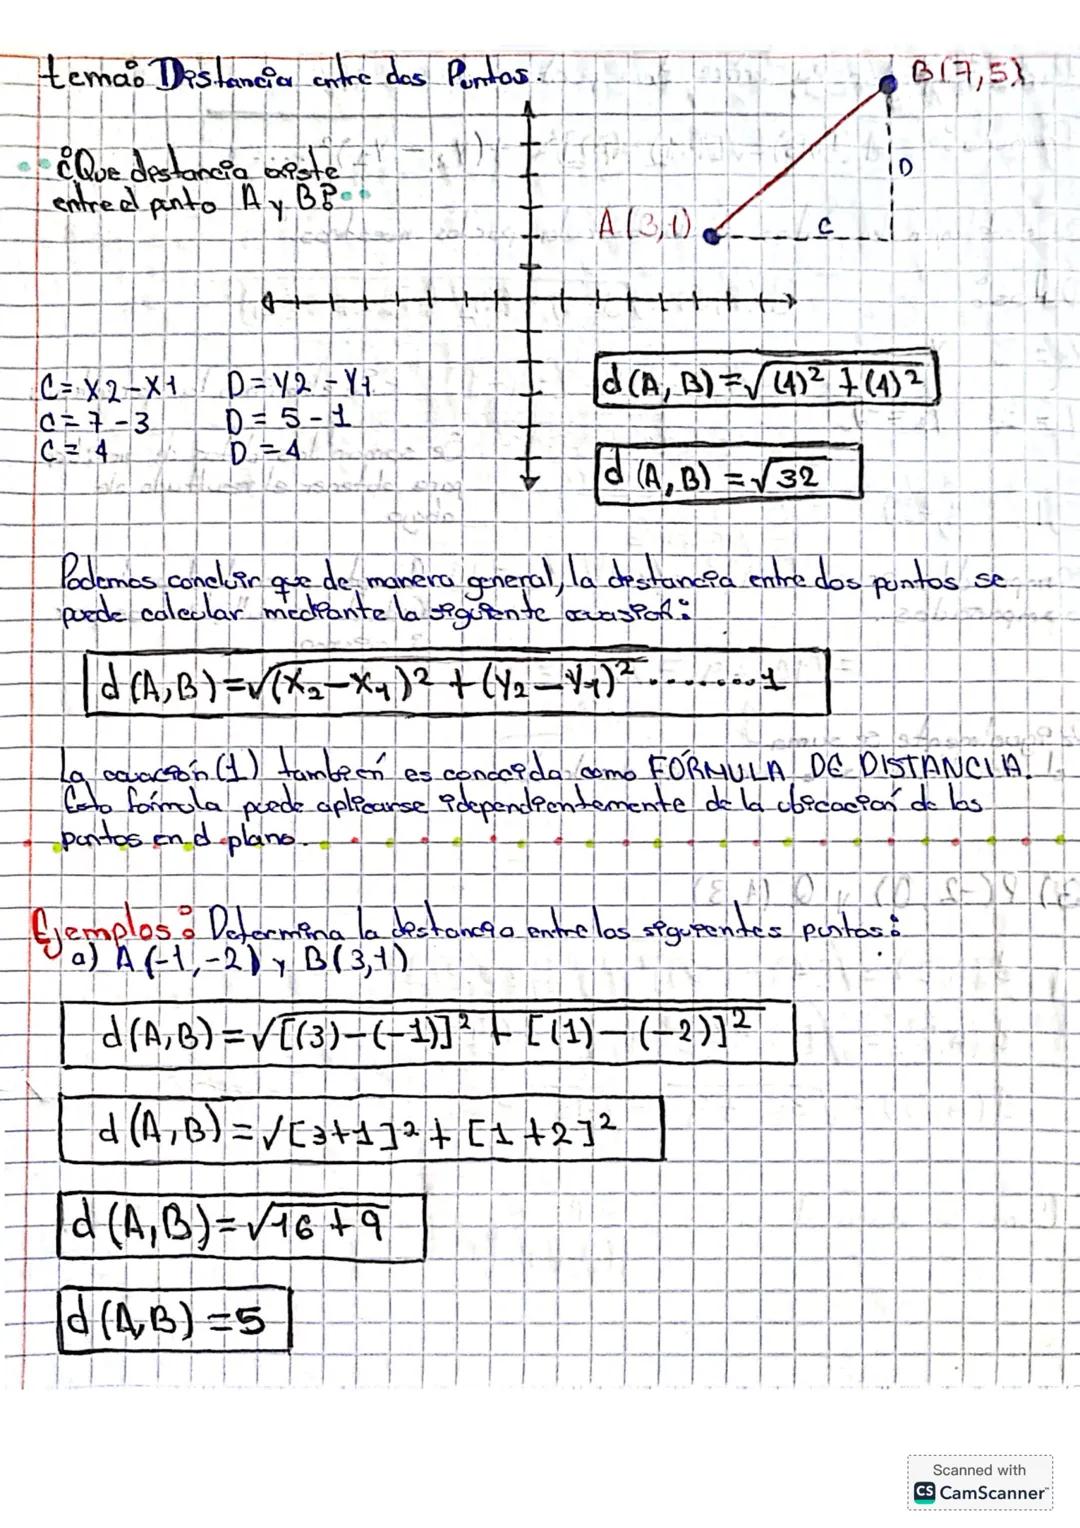 tema: Distancia entre dos Puntos.
B(7,5)
¿Que distancia existe
entre el punto A y B?
D
A(3,1)
C
C= X2-X1 D=Y2-Y1
C=7-3 D=5-1
C=4 D=4
d(A,B)=√(4)²+(4)²
d(A,B)=√32
Podemos concluir que de manera general, la distancia entre dos puntos se
puede calcular mediante la siguiente
d(A,B)=√(X₂-X₁)²+(Y₂-Y₁)²........1
La ecuación (1) también es conocida como FÓRMULA DE DISTANCIA.
Esta fórmula puede aplicarse idependientemente de la ubicación de los
puntos en el plano.
Ejemplos: Determina la distancia entre los siguientes puntos:
a) A(-1,-2) y B(3,1)
d(A,B)=√[(3)-(-1)]²+[(1)-(-2)]²
d(A,B)=√[3+1]²+[1+2]²
d(A,B)=√16+9
d(A,B)=5
Scanned with
CS CamScanner